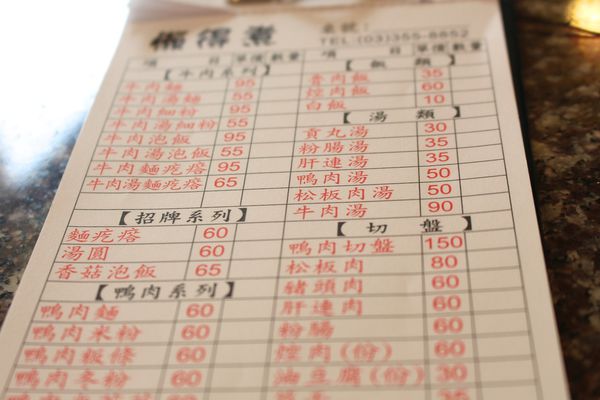 懶得煮
桌號：
TEL:(03)355-8852
項 目 單價 數量
【牛肉系列】
牛肉麵 95
牛肉湯麵 55
牛肉細粉 95
牛肉湯細粉 55
牛肉泡飯 95
牛肉湯泡飯 55
牛肉麵疙瘩 95
牛肉湯麵疙瘩 65
【招牌系列】
麵疙瘩 60
湯圓 60
香菇泡飯 65
【鴨肉系列】
鴨肉麵 60
鴨肉米粉 60
鴨肉粄條 60
鴨肉冬粉 60
項 目 單價 數量
【飯 類】
魯肉飯 35
焢肉飯 60
白飯 10
【湯 類】
貢丸湯 30
粉腸湯 35
肝連湯 35
鴨肉湯 50
松板肉湯 50
牛肉湯 90
【切 盤】
鴨肉切盤 150
松板肉 80
豬頭肉 60
肝連肉 60
粉腸 60
焢肉(份) 60
油豆腐(份) 30